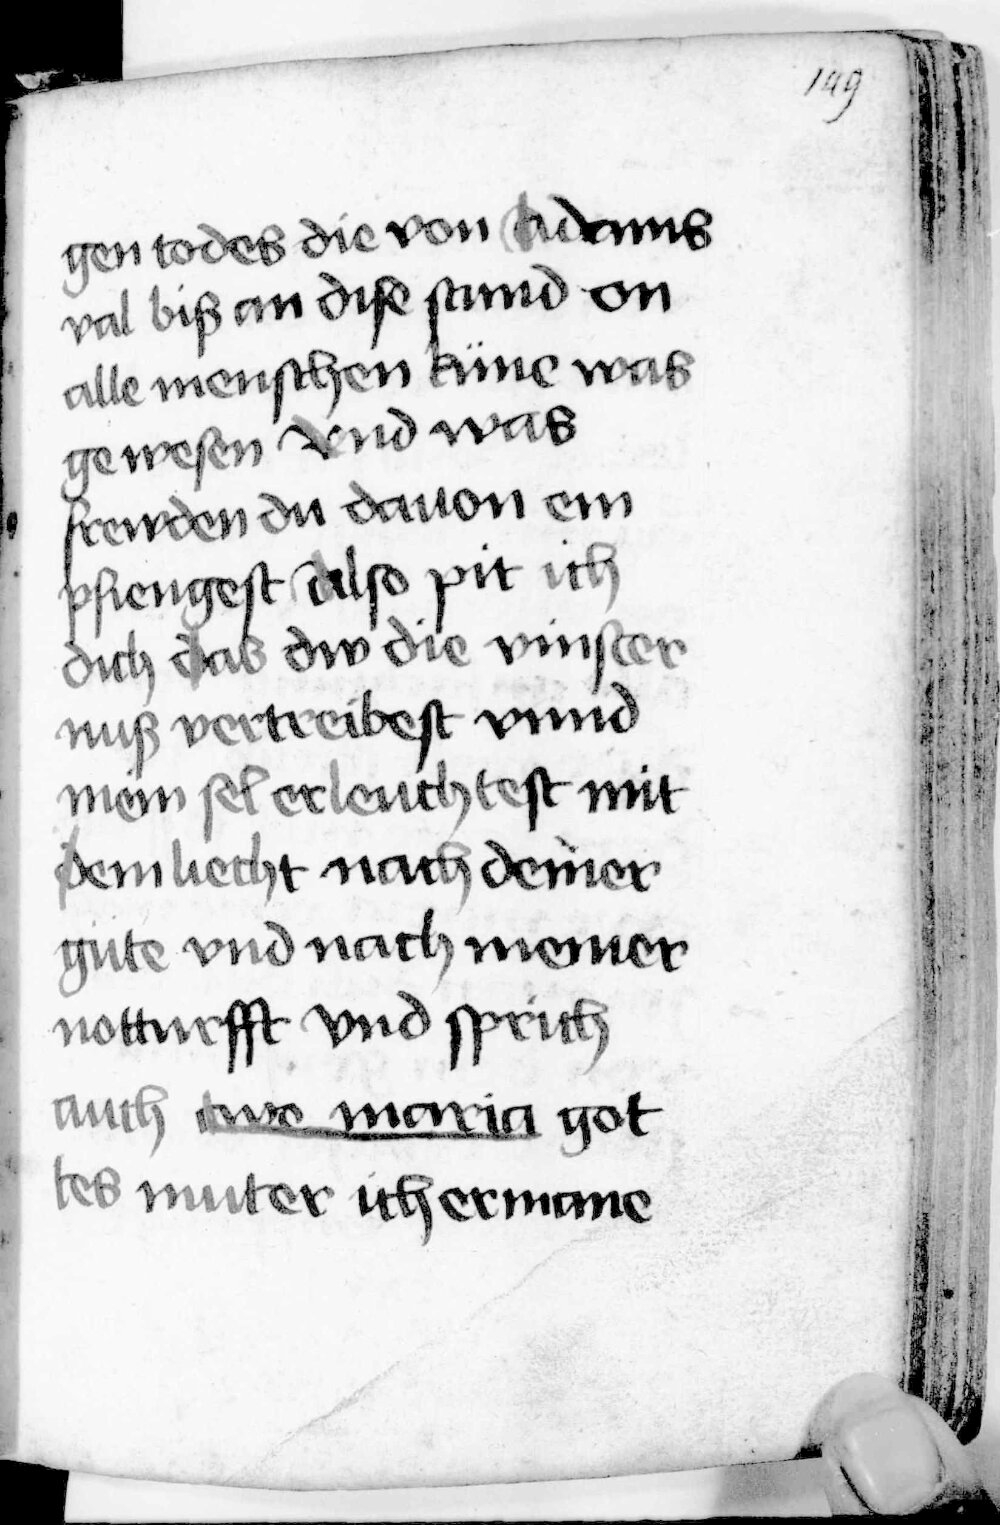 149
gen todes die von Adams
val biß an dise stund on
alle menschen küne was
gewesen Vnd was
frewden du dauon em
pfiengest Also pit ich
dich das dw die vinster
nuß vertreibest vnnd
mein sel erleuchtest mit
dem liecht nach deiner
güte vnd nach meiner
notturfft Vnd sprich
auch aue maria got
tes muter ich ermane